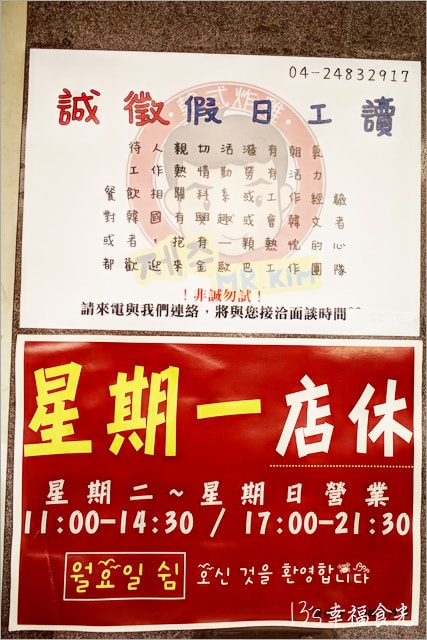 04-24832917
韓式炸雞
誠徵假日工讀
待人親切活潑有朝氣
工作熱情勤勞有活力
餐飲相關科系或工作經驗
對韓國有興趣或會韓文者
或者，抱有一顆熱忱的心
都歡迎來金歐巴工作團隊
제주
MR.KIM
！非誠勿試！
請來電與我們連絡，將與您接洽面談時間^^
星期一店休
星期二~星期日營業
11:00-14:30 / 17:00-21:30
월요일 쉼 오신 것을 환영합니다
13's幸福食光